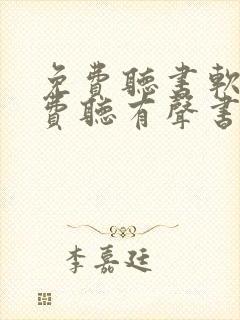 免費聽書軟
費聽有聲書
李嘉廷